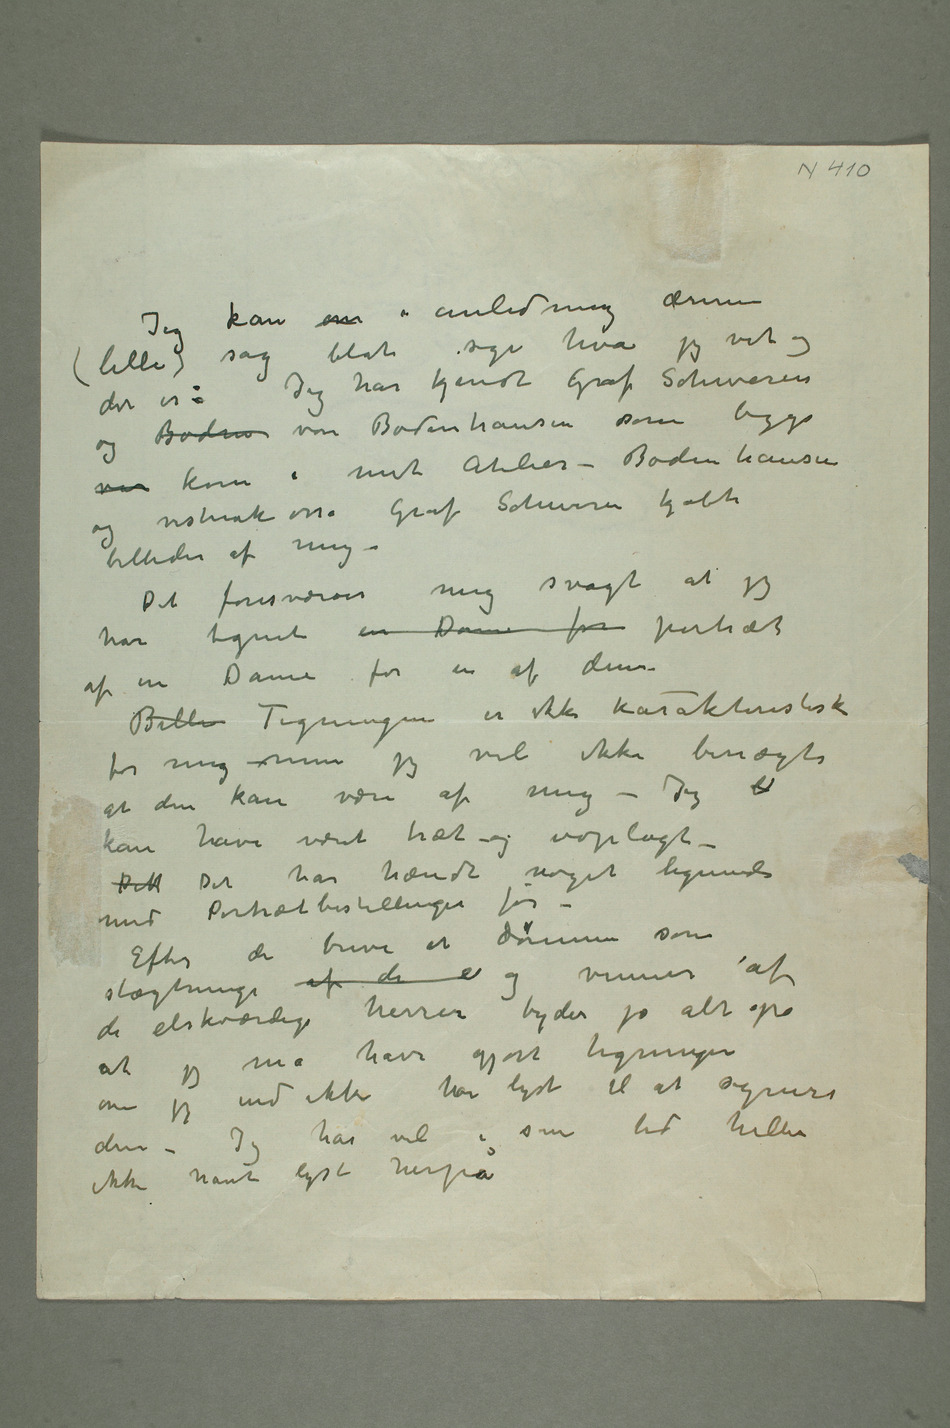 N 410
Jeg kan om i anledning denne
(lille) sag blot sige hva jeg vet og
det er: Jeg har kjendt Graf Schweren
og Boden von Bodenhausen som begge
var kom i mit Atelier – Bodenhausen
og vistnok også Graf Schweren kjøbte
billeder af mig –
Det foresvæver mig svagt at jeg
har tegnet en Dame for portræt
af en Dame for en af dem –
Bille Tegningen er ikke karakteristisk
for mig – men jeg vil ikke benægte
at den kan være af mig – Jeg
kan have været træt og uoplagt –
Det Det har hændt noget lignende
med Portrætbestillinger før –
Efter de breve at dømme som
slægtninge af de e og venner af
de elskværdige herrer tyder jo alt på
at jeg må have gjort tegningen
om jeg end ikke har lyst til at signere
den – Jeg har vel i sin tid heller
ikke havt lyst herpå